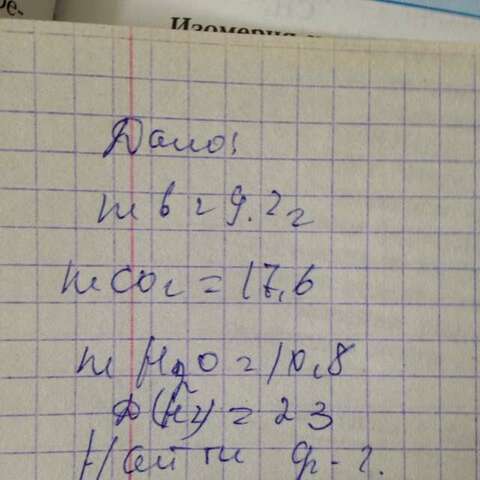 Изомерия
Дано:
m в = 9.2 г
m CO2 = 17,6
m H2O = 10,8
D(H2) = 23
Найти ф-г.